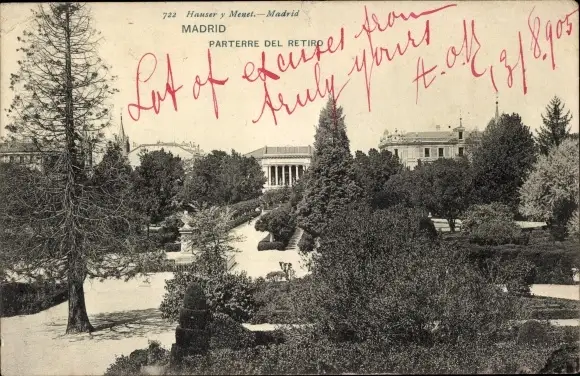 722 Hauser y Menet.—Madrid
MADRID
PARTERRE DEL RETIRO
Lot of excuses from
truly yours
13/8.905